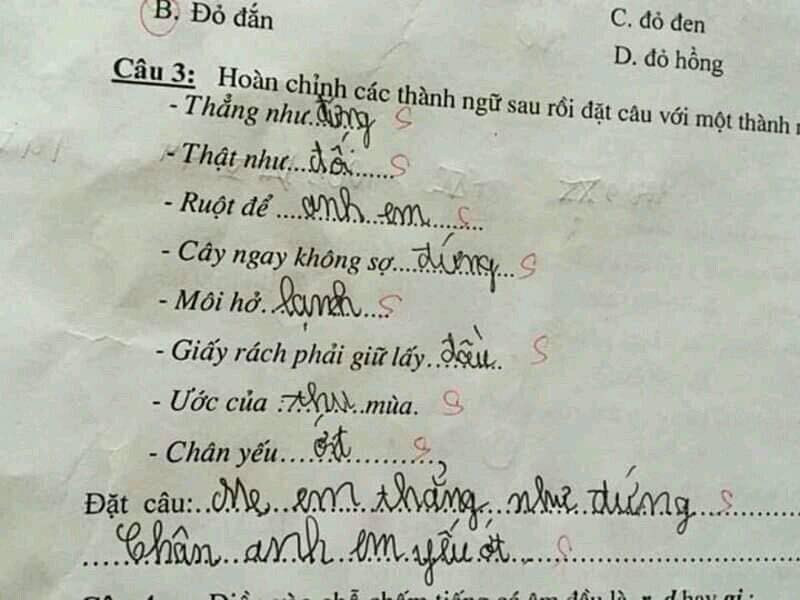 B. Đỏ đắn
C. đỏ đen
D. đỏ hồng
Câu 3: Hoàn chỉnh các thành ngữ sau rồi đặt câu với một thành
- Thẳng như...đứng S
- Thật như...dối...... S
- Ruột để ....anh em....... S
- Cây ngay không sợ....đứng... S
- Môi hở..lạnh.... S
- Giấy rách phải giữ lấy..đầu.. S
- Ước của ....thu..mùa. S
- Chân yếu....ớt............, S
Đặt câu:..Mẹ em thẳng như đứng... S
.....Chân anh em yếu ớt.... S